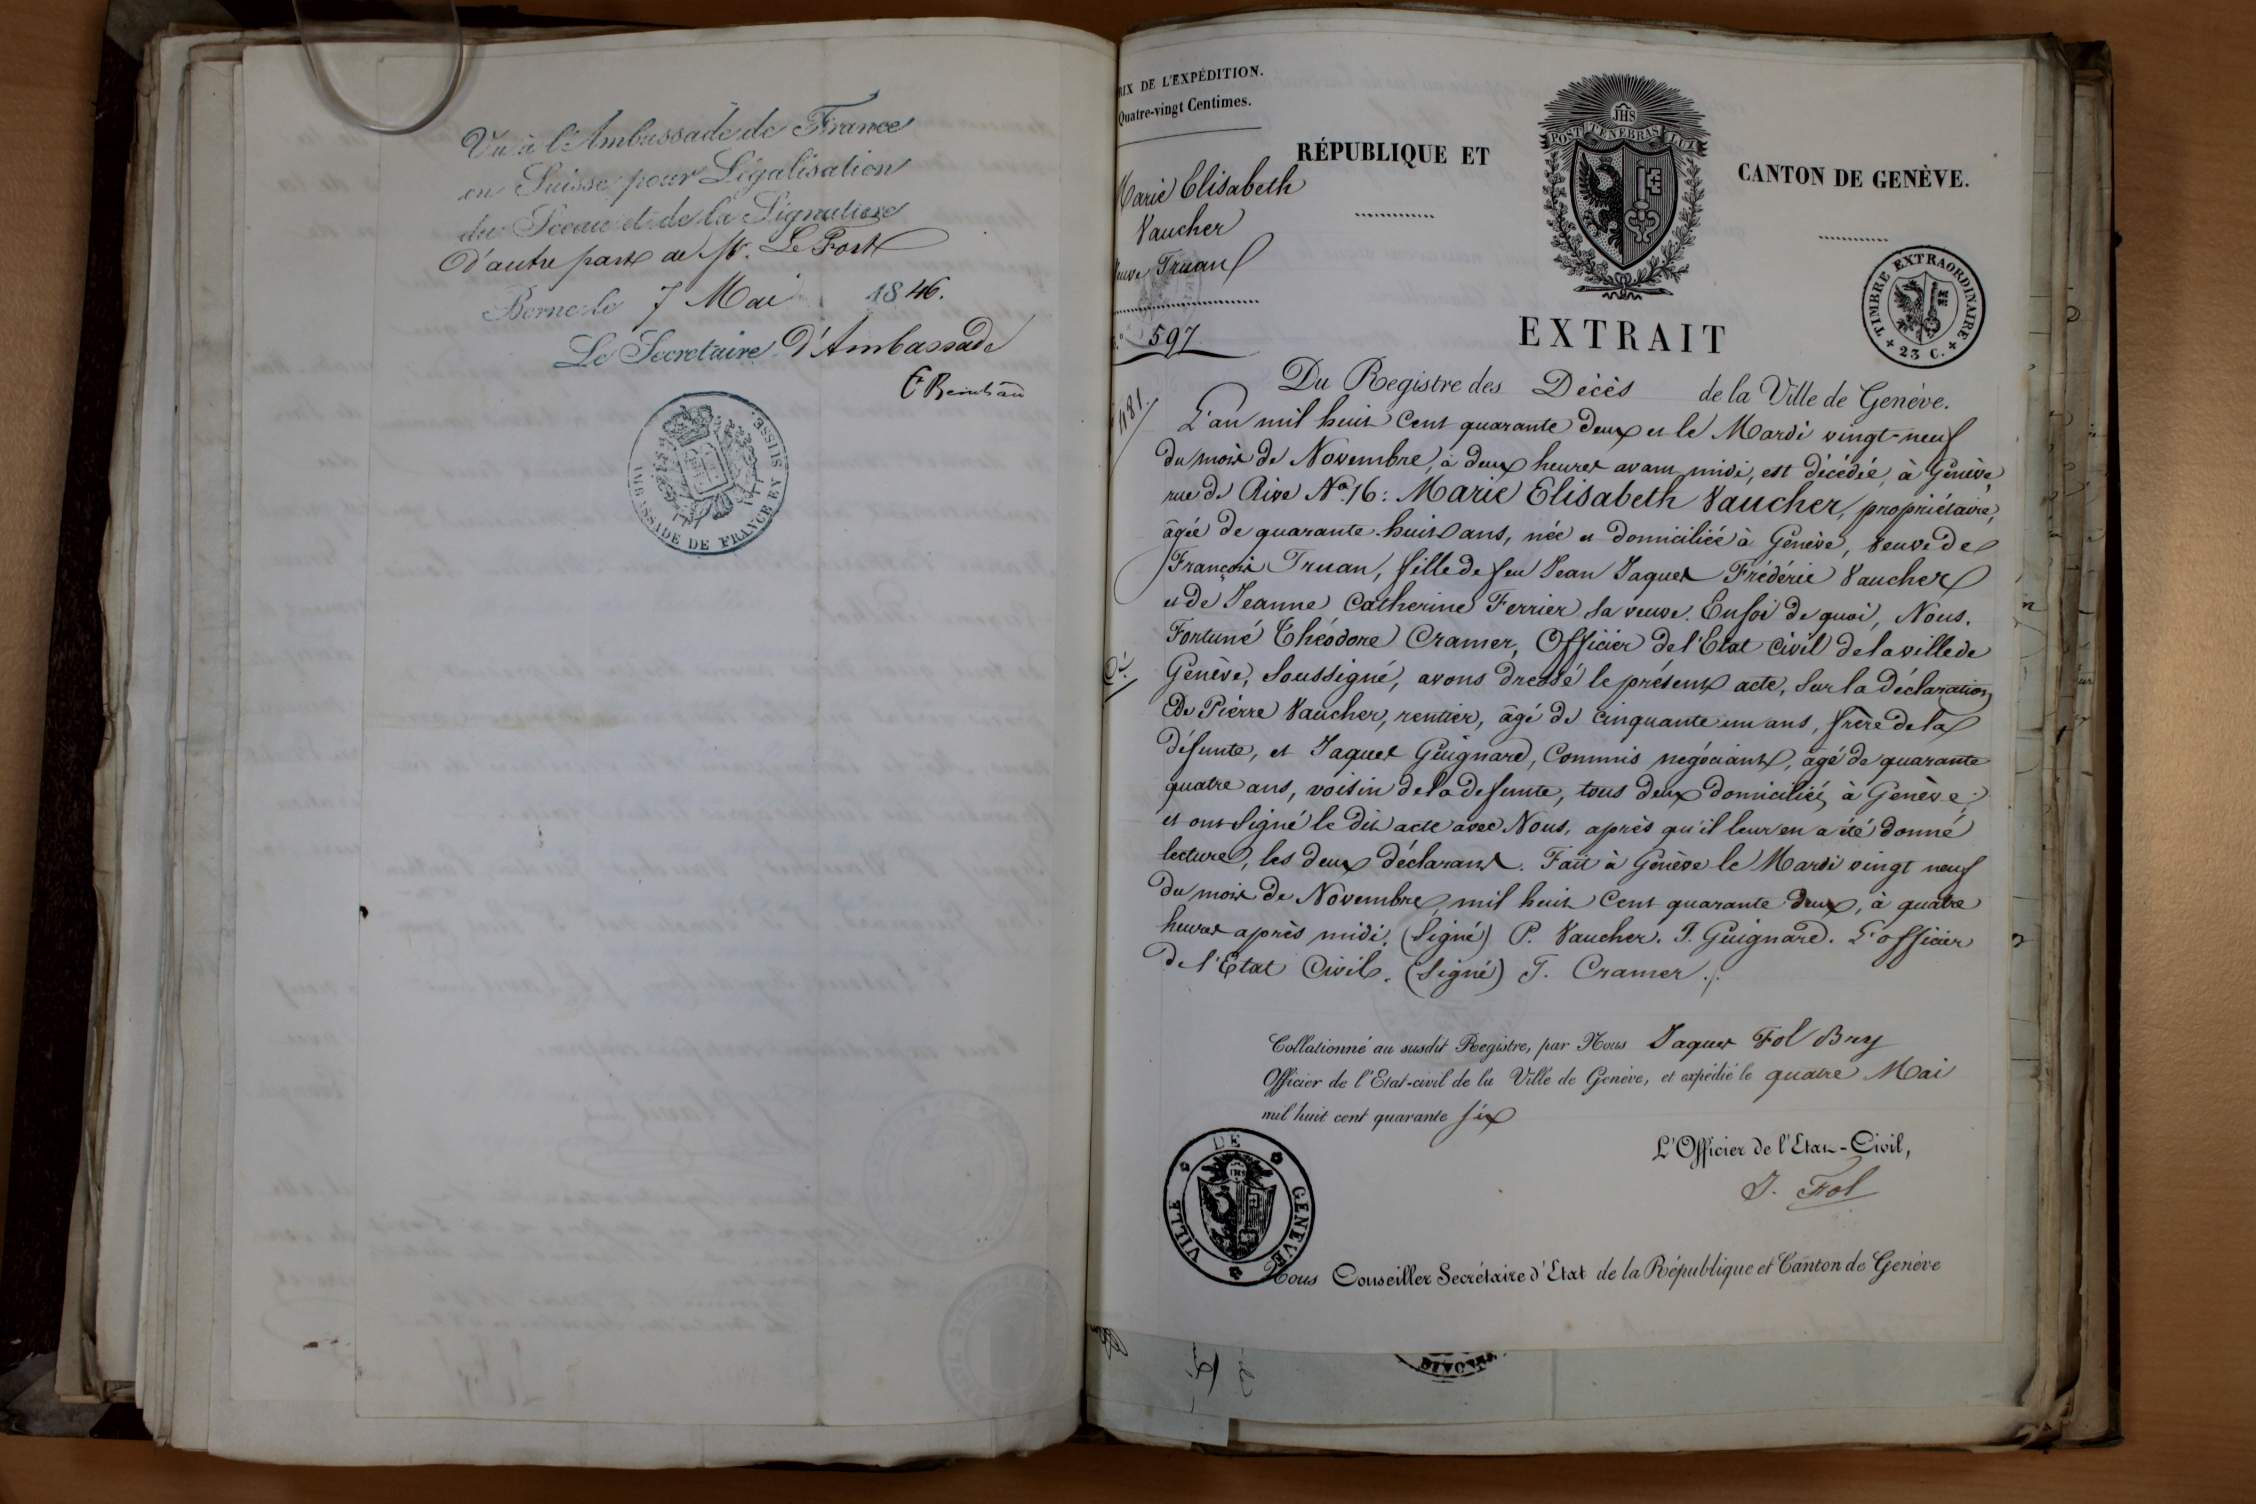 Vu à l'Ambassade de France
en Suisse pour Légalisation
du Sceau et de la Signature
d'autre part de M. Le Fort
Berne le 7 Mai 1846.
Le Secretaire d'Ambassade
AMBASSADE DE FRANCE EN SUISSE.
PRIX DE L'EXPÉDITION.
Quatre-vingt Centimes.
Marie Elisabeth
Vaucher
Veuve Truan
597
1181.
RÉPUBLIQUE ET
JHS
POST TENEBRAS LUX
CANTON DE GENÈVE.
TIMBRE EXTRAORDINAIRE
23 C.
EXTRAIT
Du Registre des Décès de la Ville de Genève.
L'an mil huit cent quarante deux et le Mardi vingt-neuf
du mois de Novembre, à deux heures avant midi, est décédée, à Genève,
rue de Rive No. 16: Marie Elisabeth Vaucher, propriétaire,
âgée de quarante huit ans, née et domiciliée à Genève, veuve de
François Truan, fille de feu Jean Jaques Frédéric Vaucher
et de Jeanne Catherine Ferrier sa veuve. En foi de quoi, Nous,
Fortuné Théodore Cramer, Officier de l'Etat Civil de la ville de
Genève, soussigné, avons dressé le présent acte, sur la déclaration
De Pierre Vaucher, rentier, âgé de cinquante un ans, frère de la
défunte, et Jaques Guignard, Commis négociant, âgé de quarante
quatre ans, voisin de la defunte, tous deux domiciliés à Genève;
et ont signé le dit acte avec Nous, après qu'il leur en a été donné
lecture, les deux déclarans. Fait à Genève le Mardi vingt neuf
du mois de Novembre, mil huit cent quarante deux, à quatre
heures après midi. (Signé) P. Vaucher. J. Guignard. L'officier
de l'Etat Civil. (Signé) T. Cramer.
Collationné au susdit Registre, par Nous Jaques Fol Bry
Officier de l'Etat-civil de la Ville de Genève, et expédié le quatre Mai
mil huit cent quarante six
L'Officier de l'Etat-Civil,
J. Fol
VILLE DE GENEVE
JHS
Nous Conseiller Secrétaire d'Etat de la République et Canton de Genève